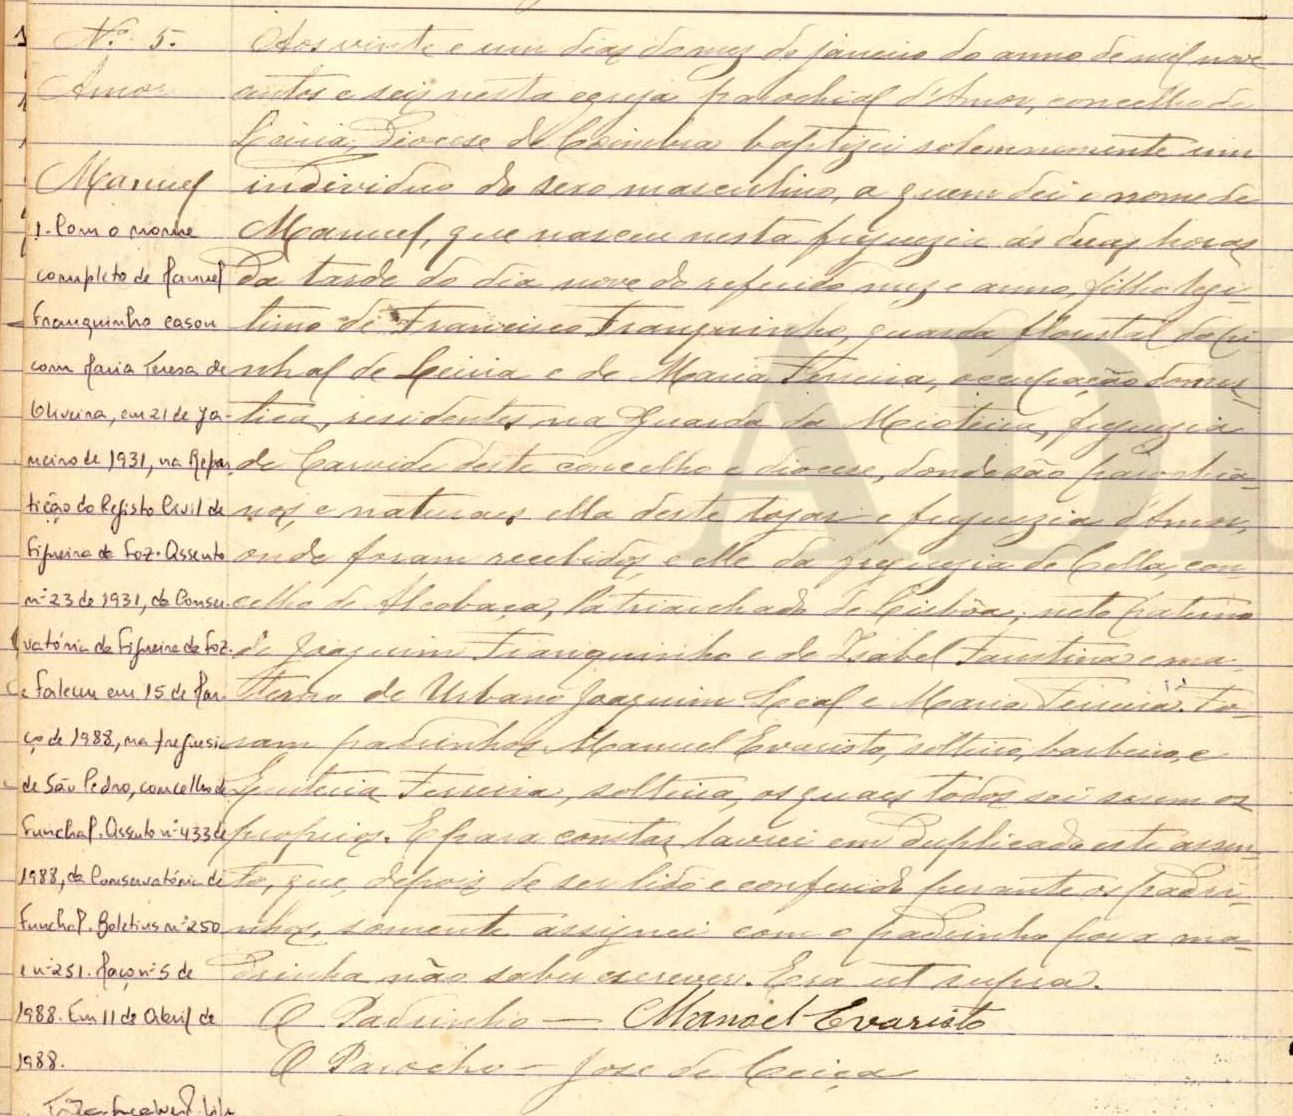 Nº 5.
Amor
Manuel
1. Com o nome
completo de Manuel
Franquinho casou
com Maria Teresa de
Oliveira, em 21 de Ja-
neiro de 1931, na Repar
tição do Registo Civil de
Figueira da Foz. Assento
nº 23 de 1931, da Conser-
vatória da Figueira da Foz.
e faleceu em 15 de Mar
ço de 1988, na freguesia
de São Pedro, concelho de
Funchal. Assento nº 433 de
1988, da Conservatória de
Funchal. Boletins nº 250
e nº 251. Maço nº 5 de
1988. Em 11 de Abril de
1988.
Aos vinte e um dias do mez de janeiro do anno de mil nove
centos e seis nesta egreja parochial d'Amor, concelho de
Leiria, Diocese de Coimbra baptizei solemnemente um
individuo do sexo masculino, a quem dei o nome de
Manuel, que nasceu nesta freguezia ás duas horas
da tarde do dia nove do referido mez e anno, filho legi-
timo de Francisco Franquinho, guarda florestal do Pi-
nhal de Leiria e de Maria Ferreira, occupação domes-
tica, residentes na Guarda da freguezia
de Carvide deste concelho e diocese, donde são parochia-
nos, e naturaes ella deste logar e freguezia d'Amor,
onde foram recebidos, e elle da freguezia de Cella, con-
celho de Alcobaça, Patriarchado de Lisbôa; neto paterno
de Joaquim Franquinho e de Isabel Faustina e ma-
terno de Urbano Joaquim Leal e Maria Ferreira. Fo-
ram padrinhos Manuel Evaristo, solteiro, barbeiro, e
Ferreira, solteira, os quaes todos sei serem os
proprios. E para constar lavrei em duplicado este assen-
to, que, depois de ser lido e conferido perante os padri-
nhos, somente assignei com o padrinho por a ma-
drinha não saber escrever. Era ut supra.
O Padrinho — Manoel Evaristo
O Parocho — José de